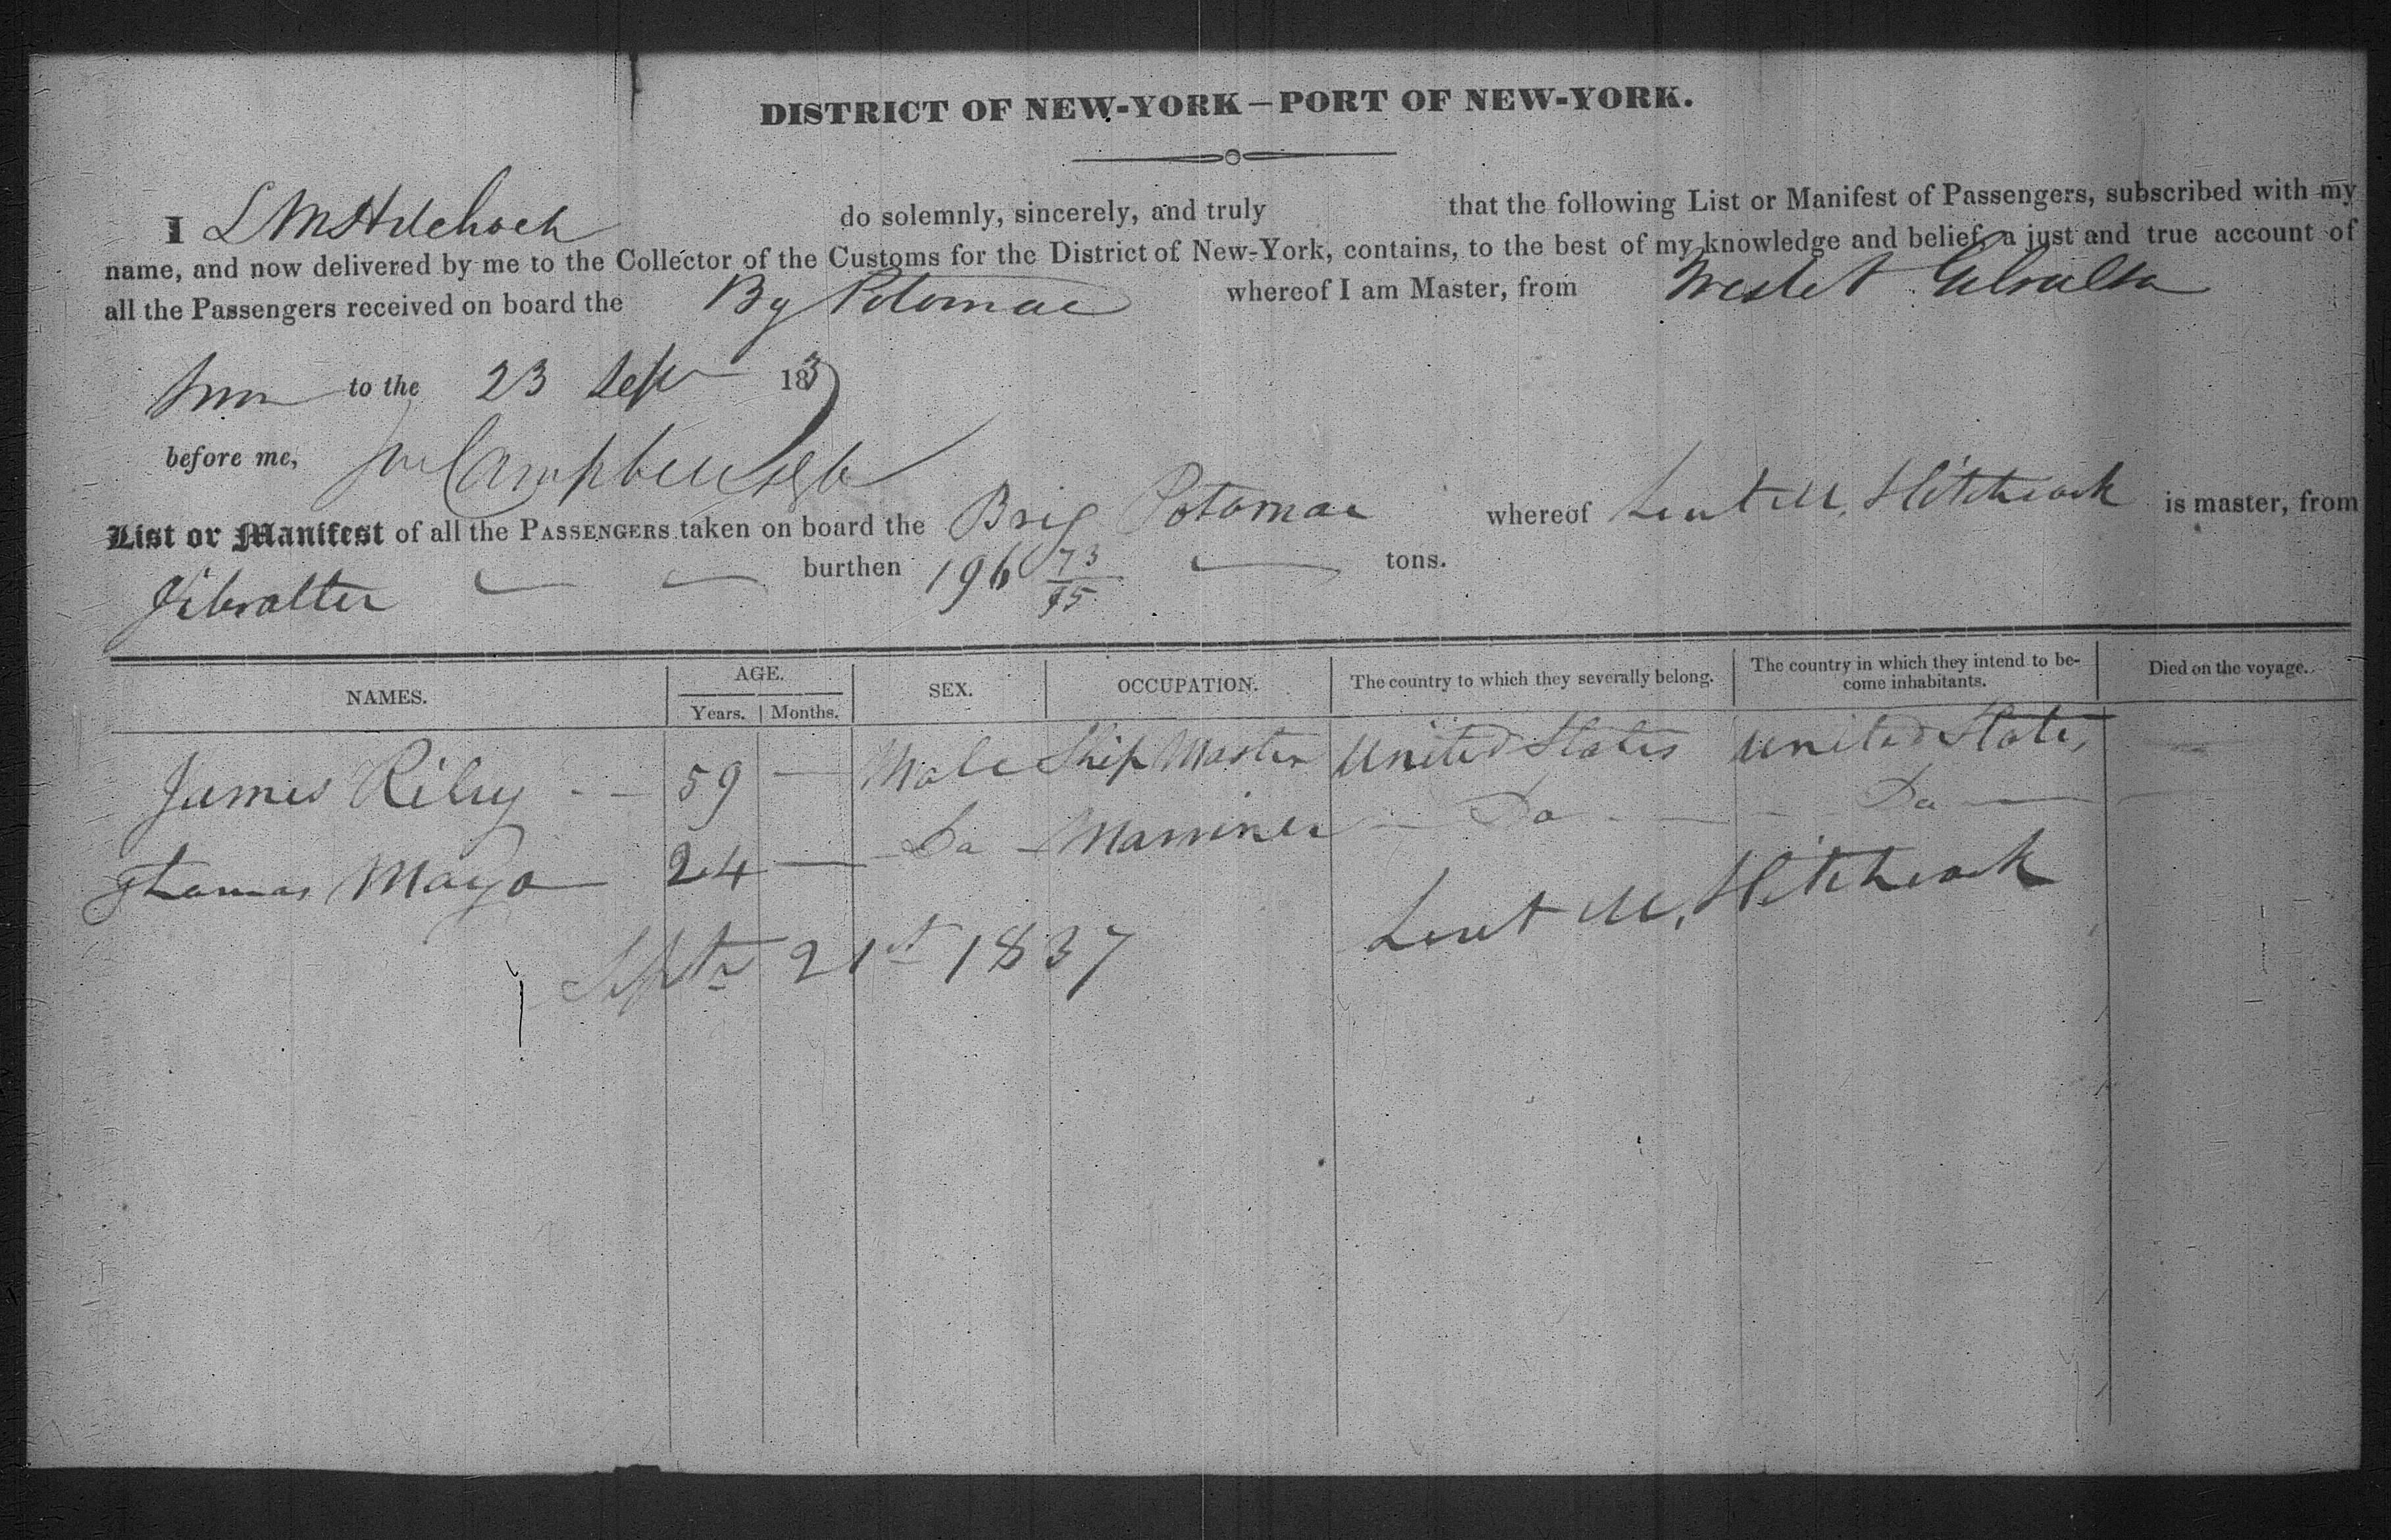 DISTRICT OF NEW-YORK—PORT OF NEW-YORK.
I L M Hitchcock do solemnly, sincerely, and truly that the following List or Manifest of Passengers, subscribed with my
name, and now delivered by me to the Collector of the Customs for the District of New-York, contains, to the best of my knowledge and belief, a just and true account of
all the Passengers received on board the Bg Potomac whereof I am Master, from Gibralta
to the 23 Sept 1837
before me, Campbell
List or Manifest of all the PASSENGERS taken on board the Brig Potomac whereof Lent M. Hitchcock is master, from
Gibralter burthen 196 73/95 tons.
NAMES. AGE. SEX. OCCUPATION. The country to which they severally belong. The country in which they intend to be- Died on the voyage.
Years. Months. come inhabitants.
James Riley 59 — Male Ship Master United States United States
Thomas Mayo 24 — Do Marriner Do Do
Septr 21st 1837 Lent M. Hitchcock